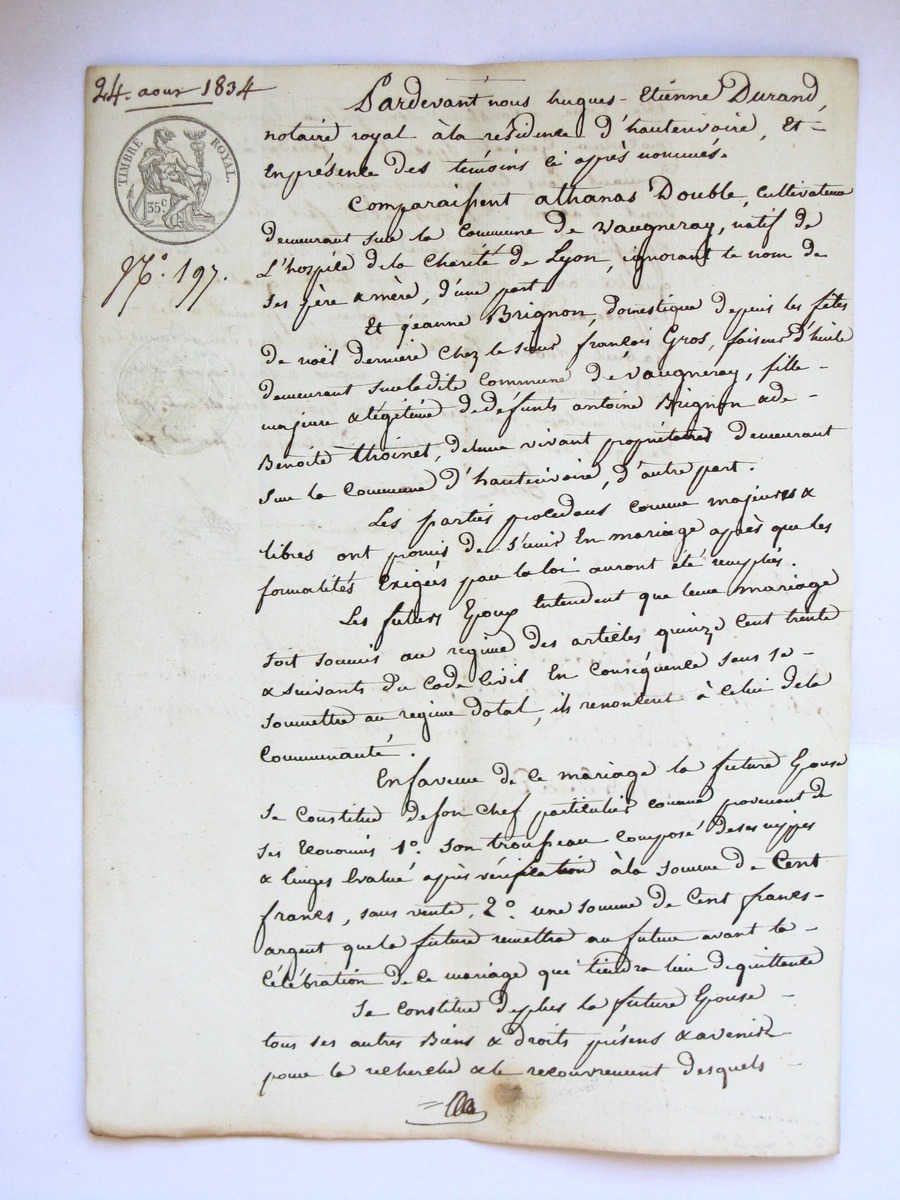 24. aout 1834
TIMBRE ROYAL.
35c
N.° 197.
Pardevant nous hugues-Etienne Durand,
notaire royal à la résidence d'hauterivoire, Et-
En présence des témoins ci après nommés.
Comparaissent athanas Double, Cultivateur
demeurant sur la Commune de Vaugneray, natif de
L'hospice de la Charité de Lyon, ignorant le nom de
ses père & mère, d'une part
Et jeanne Brignon, domestique depuis les fêtes
de noël dernière chez le sieur françois Gros, faiseur d'huile
demeurant sur ladite Commune de Vaugneray, fille-
majeure & légitime de défunts antoine Brignon & de-
Benoite thoinet, de leur vivant propriétaires demeurant
sur la Commune d'hauterivoire, d'autre part.
Les parties procédans comme majeures &
libres ont promis de s'unir En mariage après que les
formalités Exigées par la loi auront été remplies.
Les futurs Epoux Entendent que leur mariage
soit soumis au régime des articles quinze Cent trente
& suivants du Code Civil En Conséquence sans se-
soumettre au régime dotal, ils renoncent à Celui de la
Communauté.
En faveur de ce mariage la future Epouse
Se Constitue de son chef particulier comme provenant de
ses Economies 1°. son trousseau composé de ses nippes
& linges Evalué après vérification à la somme de Cent
francs, sans vente, 2°. une somme de Cent francs-
argent que la future remettra au futur avant la-
Célébration de ce mariage qui tiendra lieu de quittance
Se Constitue de plus la future Epouse-
tous ses autres Biens & droits présens & avenir
pour la recherche & le recouvrement desquels